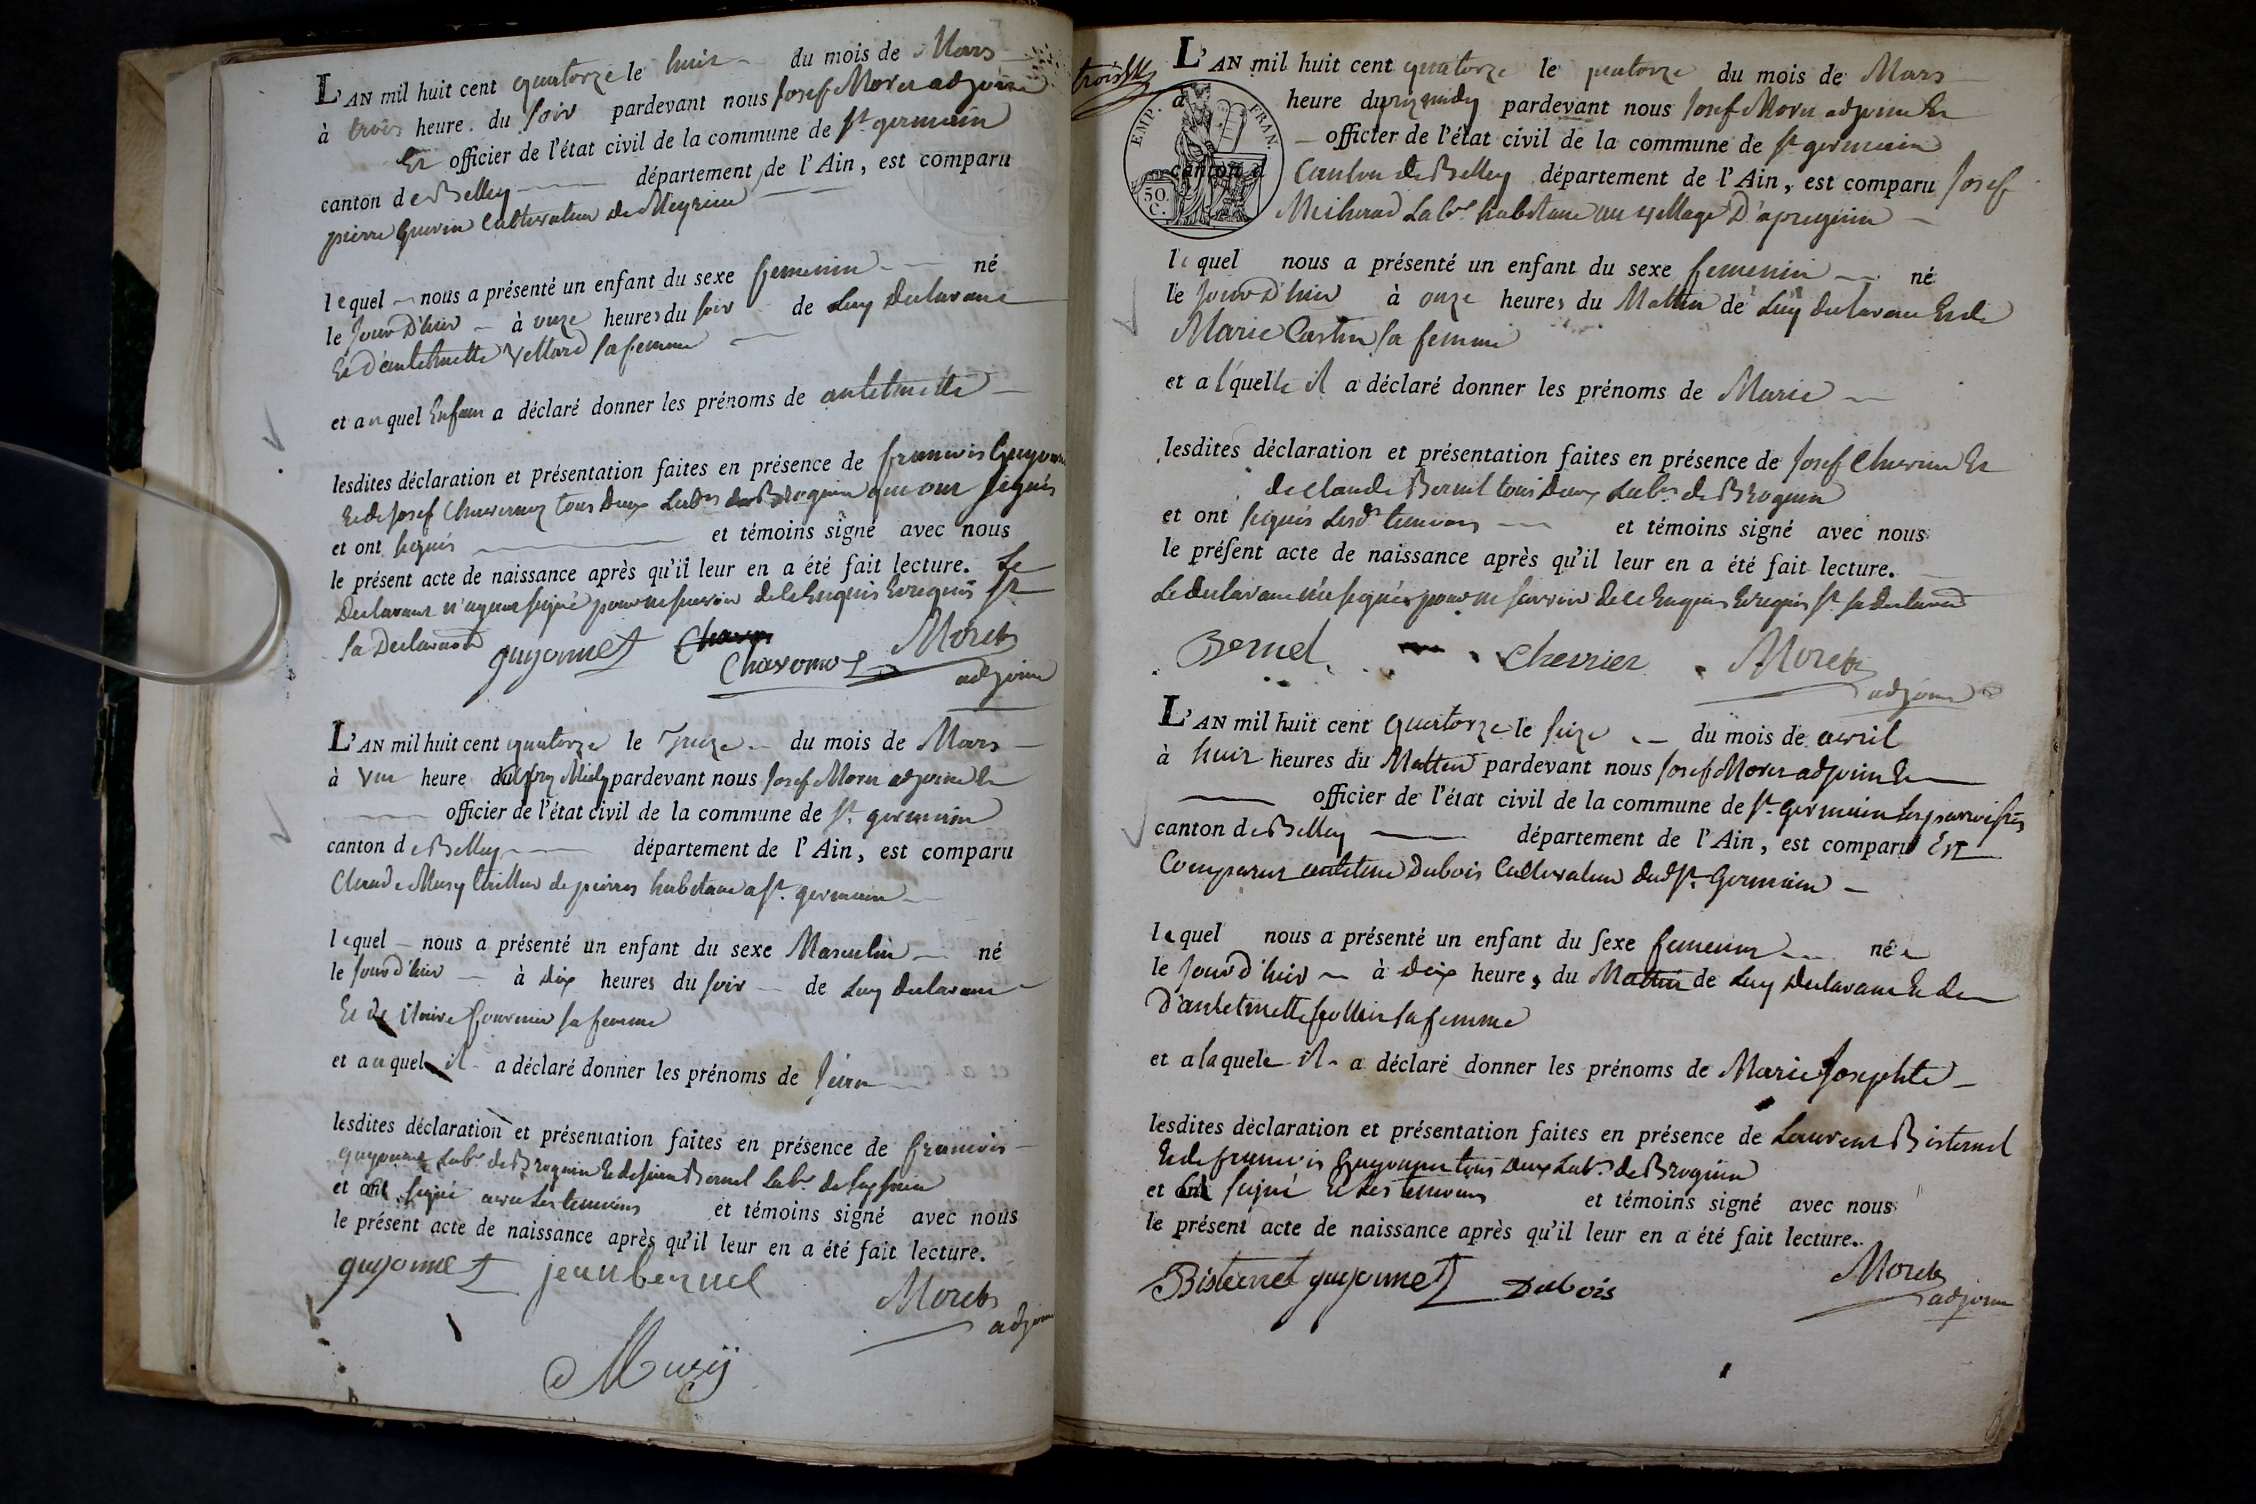 L'AN mil huit cent quatorze le huit du mois de Mars
à trois heure du soir pardevant nous Josef Moret adjoint
Et officier de l'état civil de la commune de St germain
canton de Belley département de l'Ain, est comparu
pierre Guerin Cultivateur de Meyrieu
lequel nous a présenté un enfant du sexe femenin né
le Jour D'hier à onze heures du soir de Luy Declarant
Et D'antelmette Vellard sa femme
et auquel Enfant a déclaré donner les prénoms de antelmette
lesdites déclaration et présentation faites en présence de francois Guyonnet
Et de Josef Chavornoz tous Deux Labrs de Brognin qui ont signés
et ont signés et témoins signé avec nous
le présent acte de naissance après qu'il leur en a été fait lecture. Le
Declarant n'ayant signé pour ne savoir de ce Enquis Requis St
sa Declaration
guyonnet Chavornoz Moret
adjoint
L'AN mil huit cent quatorze le Treze du mois de Mars
à Une heure du pardevant nous Josef Moret adjoint Et
officier de l'état civil de la commune de St germain
canton de Belley département de l'Ain, est comparu
Claude Musy tailleur de pierres habitant a St germain
lequel nous a présenté un enfant du sexe Masculin né
le Jour d'hier à Dix heures du soir de Luy Declarant
Et de Claire fournier sa femme
et auquel il a déclaré donner les prénoms de Jean
lesdites déclaration et présentation faites en présence de francois
guyonnet Labr de Brognin Et de Jean Bernel Labr de
et ont signé avec Les temoins et témoins signé avec nous
le présent acte de naissance après qu'il leur en a été fait lecture.
guyonnet jean bernel
Moret
adjoint
Musÿ
trois
L'AN mil huit cent quatorze le quatorze du mois de Mars
à heure du pardevant nous Josef Moret adjoint Et
officier de l'état civil de la commune de St germain
canton d Canton de Belley département de l'Ain, est comparu Josef
Labr habitant au village D'apregnin
EMP. FRAN.
50.
C.
lequel nous a présenté un enfant du sexe femenin né
le Jour D'hier à onze heures du Mattin de Luy declarant Et de
Marie Castin sa femme
et a l'quelle il a déclaré donner les prénoms de Marie
lesdites déclaration et présentation faites en présence de Josef Chevrier Et
de claude Bernel tous Deux Labrs de Brognin
et ont signés Lesds temoins et témoins signé avec nous
le présent acte de naissance après qu'il leur en a été fait lecture.
Le declarant n'a signé pour ne savoir de ce Enquis Requis St sa declaration
Bernel Chevrier Moret
adjoint
L'AN mil huit cent quatorze le seize du mois de avril
à huit heures du Mattin pardevant nous Josef Moret adjoint Et
officier de l'état civil de la commune de St Germain Les parroisses
canton de Belley département de l'Ain, est comparu Est
Comparut antelme Dubois Cultivateur dud St Germain
lequel nous a présenté un enfant du sexe femenin née
le Jour d'hier à dix heures du Mattin de Luy Declarant Et de
D'antelmette sa femme
et a laquele il a déclaré donner les prénoms de Marie Josephte
lesdites déclaration et présentation faites en présence de Laurent Bisternel
Et de francois Guyonnet tous deux Labrs de Brognin
et ont signé Et Les temoins et témoins signé avec nous
le présent acte de naissance après qu'il leur en a été fait lecture.
Bisternel guyonnet Dubois Moret
adjoint